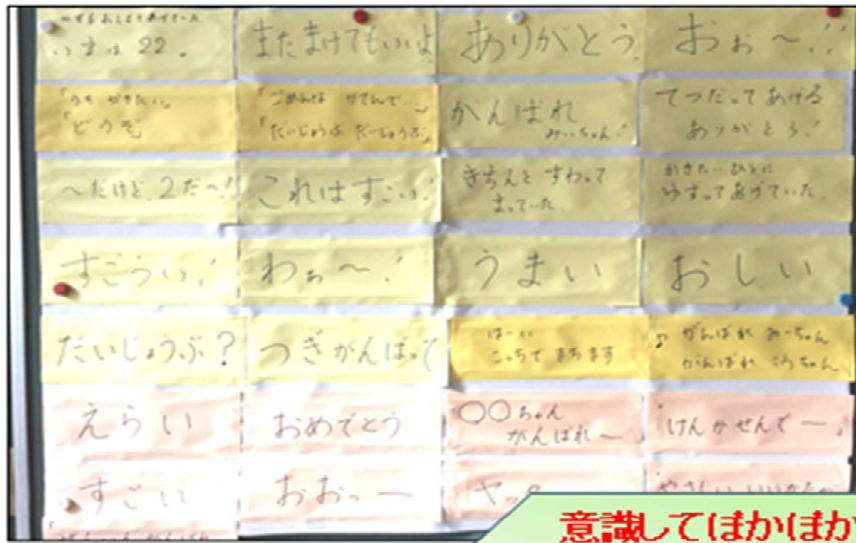 いまは 22。
またまけてもいいよ
ありがとう
おぉ〜!!
「うちがきたい。
「どうぞ
「ごめんな かてんで…」
「だいじょうぶ だいじょうぶ」
がんばれ
みぃちゃん!
てつだってあげる
ありがとう!
〜だけど、2だ〜!
これはすごい!
きちんと すわって
まっていた。
かきたいひとに
ゆずってあげていた。
すごうい!
わぁ〜!
うまい
おしい
だいじょうぶ?
つぎがんばって
はーい
こっちで まちます
♪ がんばれ みーちゃん
がんばれ こうちゃん
えらい
おめでとう
○○ちゃん
がんばれ〜
けんかせんでー
すごい
おおっー
ヤッ
やさしい いいかた
意識してぽかぽか